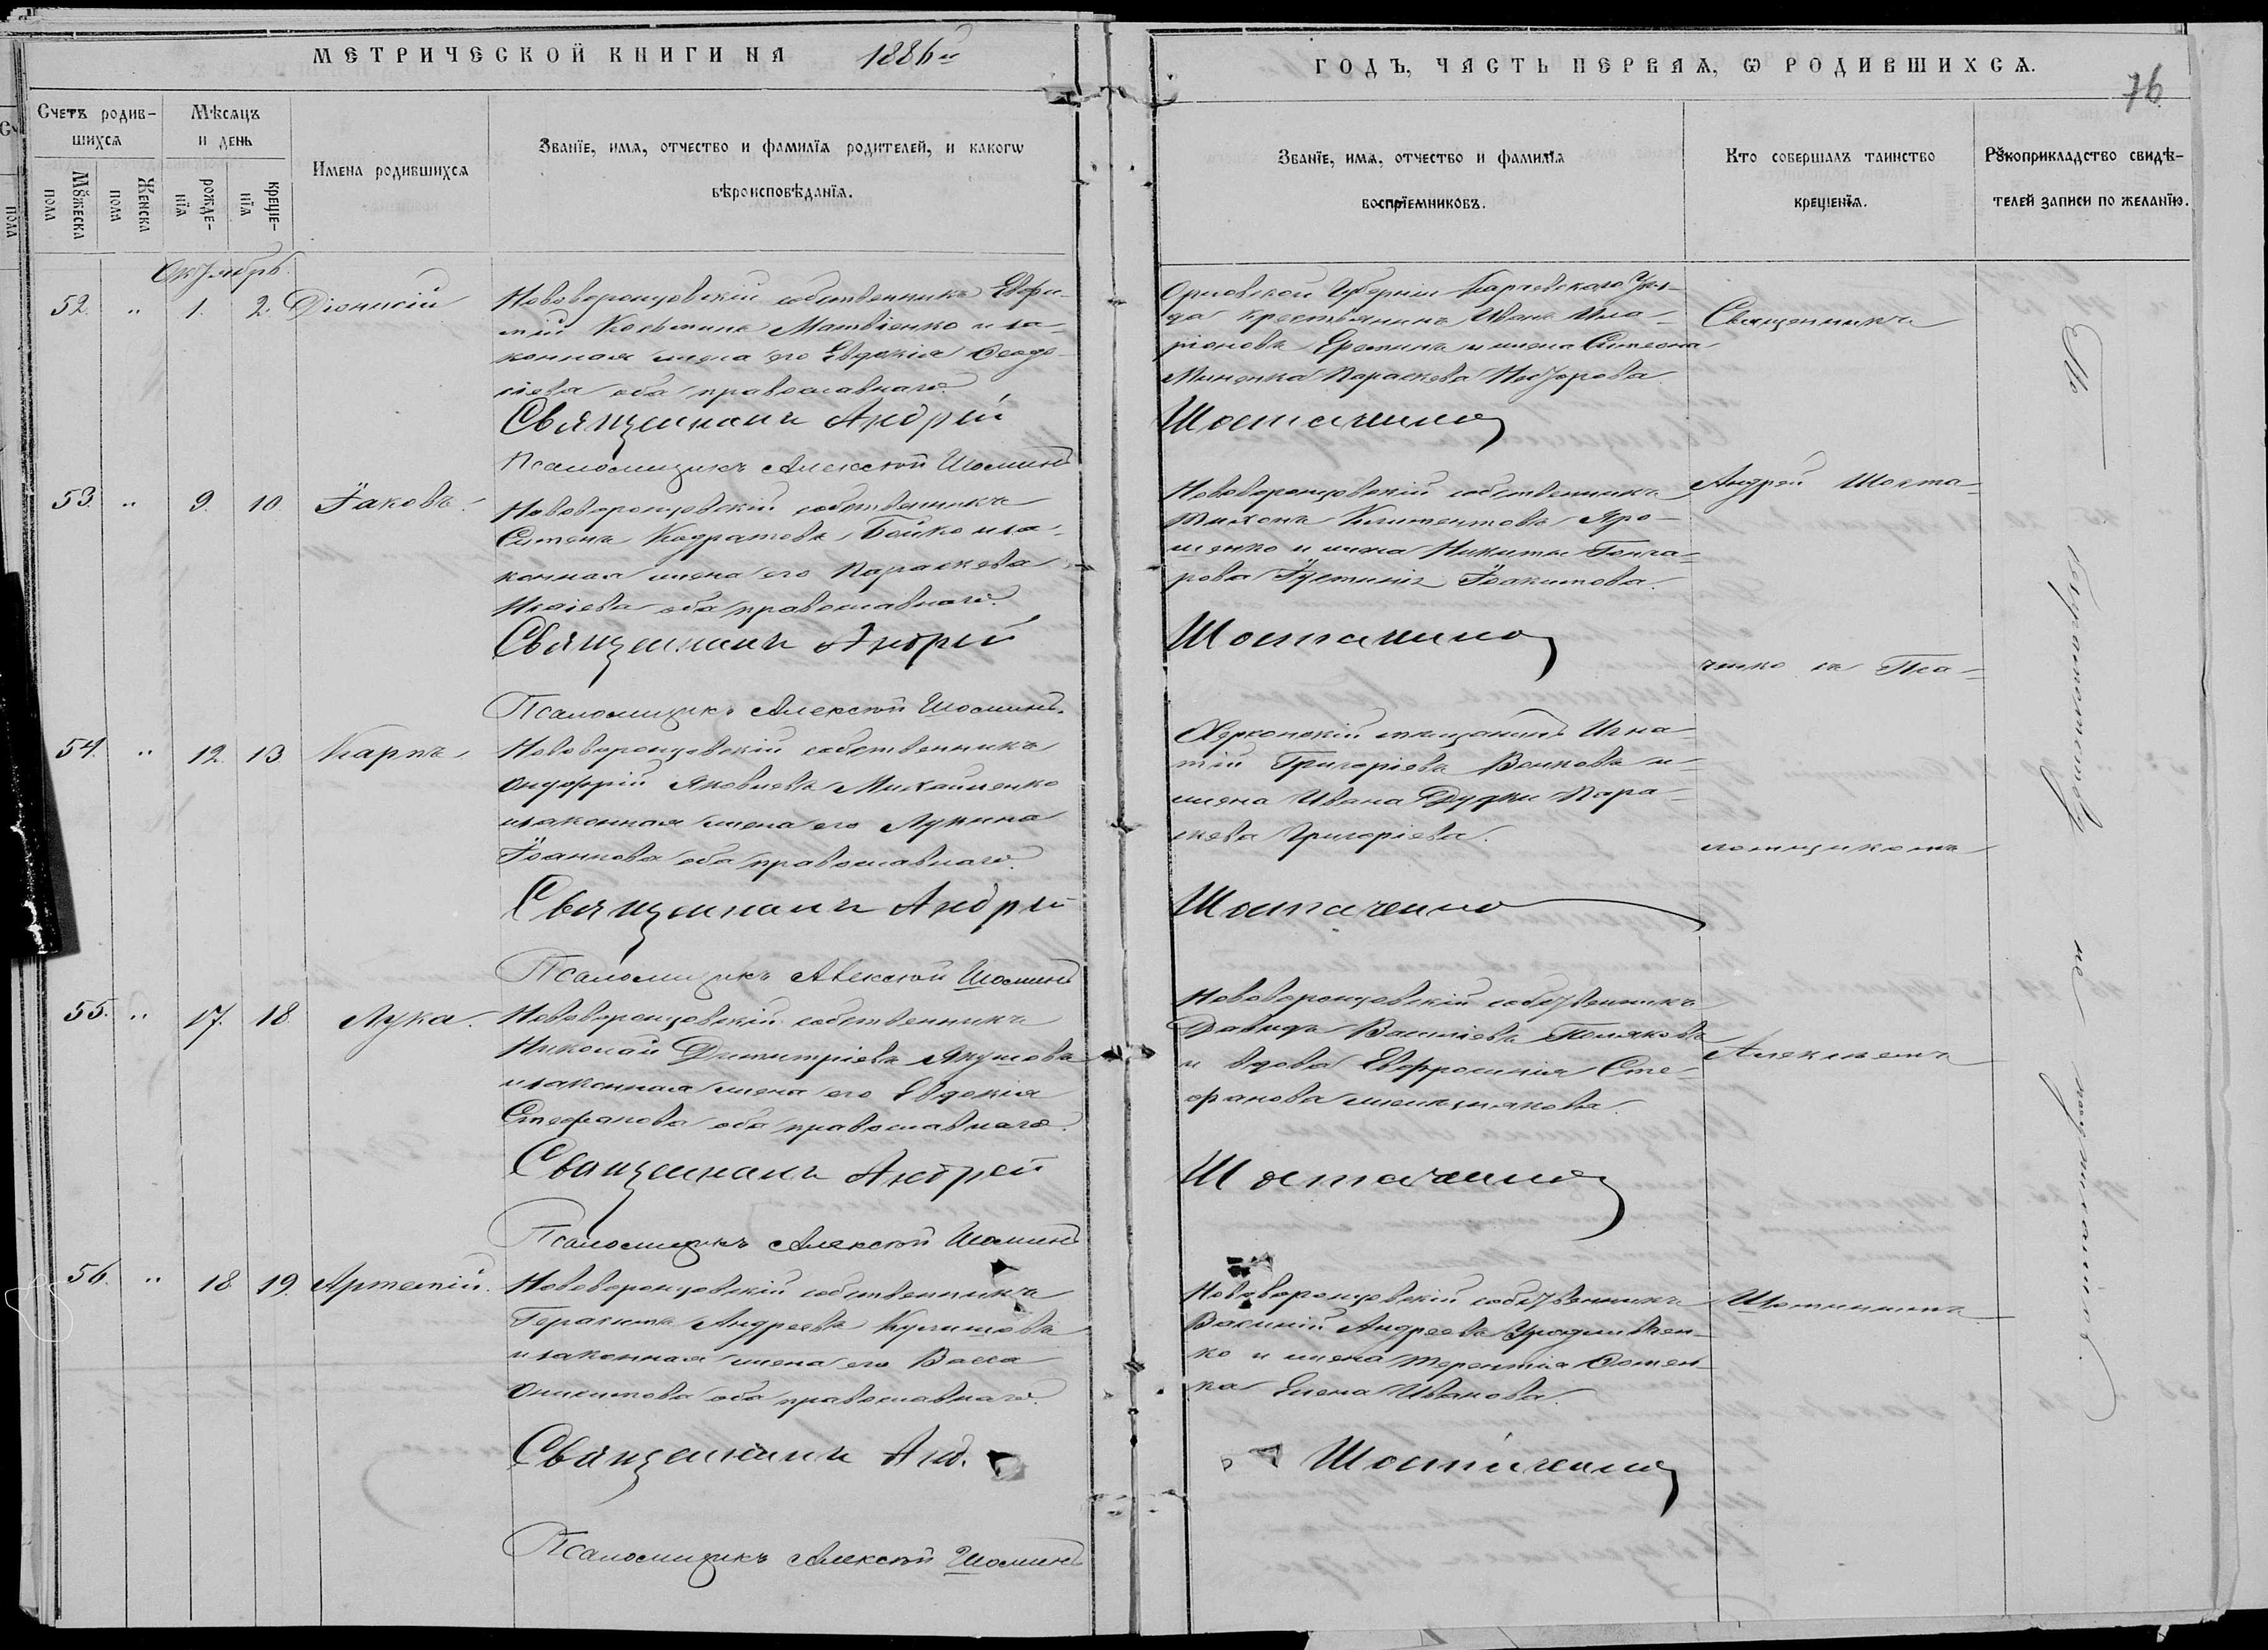 МЕТРИЧЕСКОЙ КНИГИ НА 1886й
ГОДЪ, ЧАСТЬ ПЕРВАЯ, Ѡ РОДИВШИХСЯ.
76
Счетъ родив-
шихся
Мѣсяцъ
и день
Мꙋжеска
пола
Женска
пола
рожде-
нїя
креще-
нїя
Имена родившихся
Званїе, имя, отчество и фамилїя родителей, и какогѡ
вѣроисповѣданїя.
Званїе, имя, отчество и фамилїя
воспрїемниковъ.
Кто совершалъ таинство
крещенїя.
Рꙋкоприкладство свидѣ-
телей записи по желанїю.
Октябрь
52. " 1. 2. Діонисій
Нововоронцовскій собственникъ Евфи-
мій Косьминъ Матвіенко и за-
конная жена его Евдокія Ѳеодо-
сіева оба православнаго.
Священникъ Андрей
Псаломщикъ Алексѣй Шоминъ
Орловской Губерніи Карачевскаго Уѣз-
да крестьянинъ Иванъ Ила-
ріоновъ Ереминъ и жена Симеона
Миненка Параскева Несторова.
Шостаченко
53. " 9. 10. Іаковъ.
Нововоронцовскій собственникъ
Симеонъ Кодратовъ Бойко и за-
конная жена его Параскева
Исаіева оба православнаго.
Священникъ Андрей
Псаломщикъ Алексѣй Шоминъ.
Нововоронцовскій собственникъ
Тихонъ Климентовъ Яро-
шенко и жена Никиты Гонча-
рова Іустинія Іоакимова.
Шостаченко
54. " 12. 13 Карпъ
Нововоронцовскій собственникъ
Онуфрій Яковлевъ Михайленко
и законная жена его Лукина
Іоаннова оба православнаго.
Священникъ Андрей
Псаломщикъ Алексѣй Шоминъ
Херсонскій мѣщанинъ Игна-
тій Григоріевъ Волковъ и
жена Ивана Дудки Пара-
скева Григоріева.
Шостаченко
55. " 17. 18. Лука.
Нововоронцовскій собственникъ
Николай Димитріевъ Якушовъ
и законная жена его Евдокія
Стефанова оба православнаго.
Священникъ Андрей
Псаломщикъ Алексѣй Шоминъ
Нововоронцовскій собственникъ
Давидъ Васильевъ Поляковъ
и вдова Евфросинія Сте-
фанова
Шостаченко
56. " 18 19. Артемій.
Нововоронцовскій собственникъ
Герасимъ Андреевъ Кулишовъ
и законная жена его Васса
Оникимова оба православнаго.
Священникъ Анд.
Псаломщикъ Алексѣй Шоминъ
Нововоронцовскій собственникъ
Василій Андреевъ
ко и жена Терентія Ѳомен-
ка Елена Иванова.
Шостаченко
Священникъ
Андрей Шоста-
ченко съ Пса-
ломщикомъ
Алексѣемъ
Шоминымъ